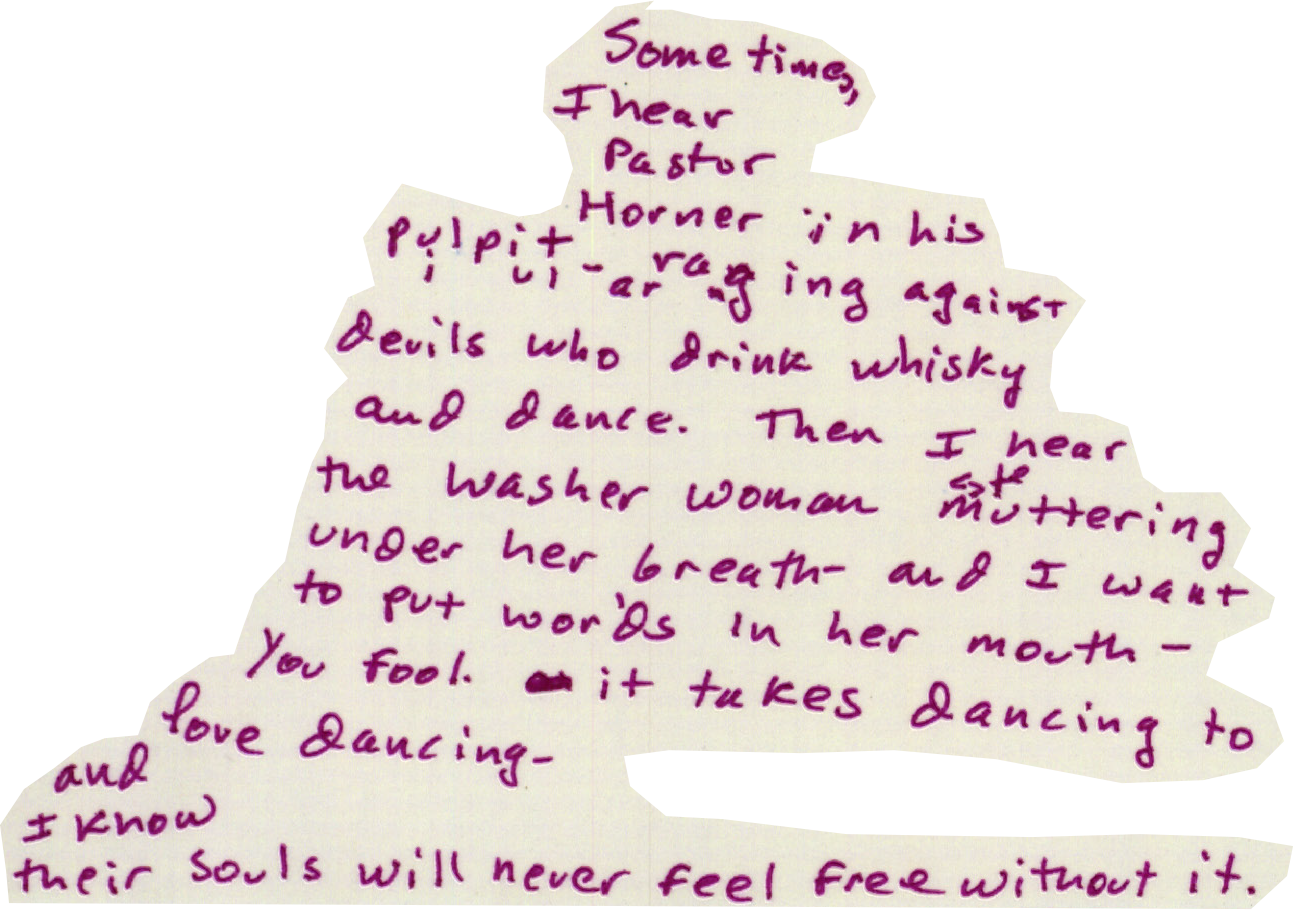 Sometimes,
I hear
Pastor
Horner in his
pulpit raging against
devils who drink whisky
and dance. Then I hear
the washer woman muttering
under her breath- and I want
to put words in her mouth-
You fool. it takes dancing to
love dancing-
and
I know
their souls will never feel free without it.